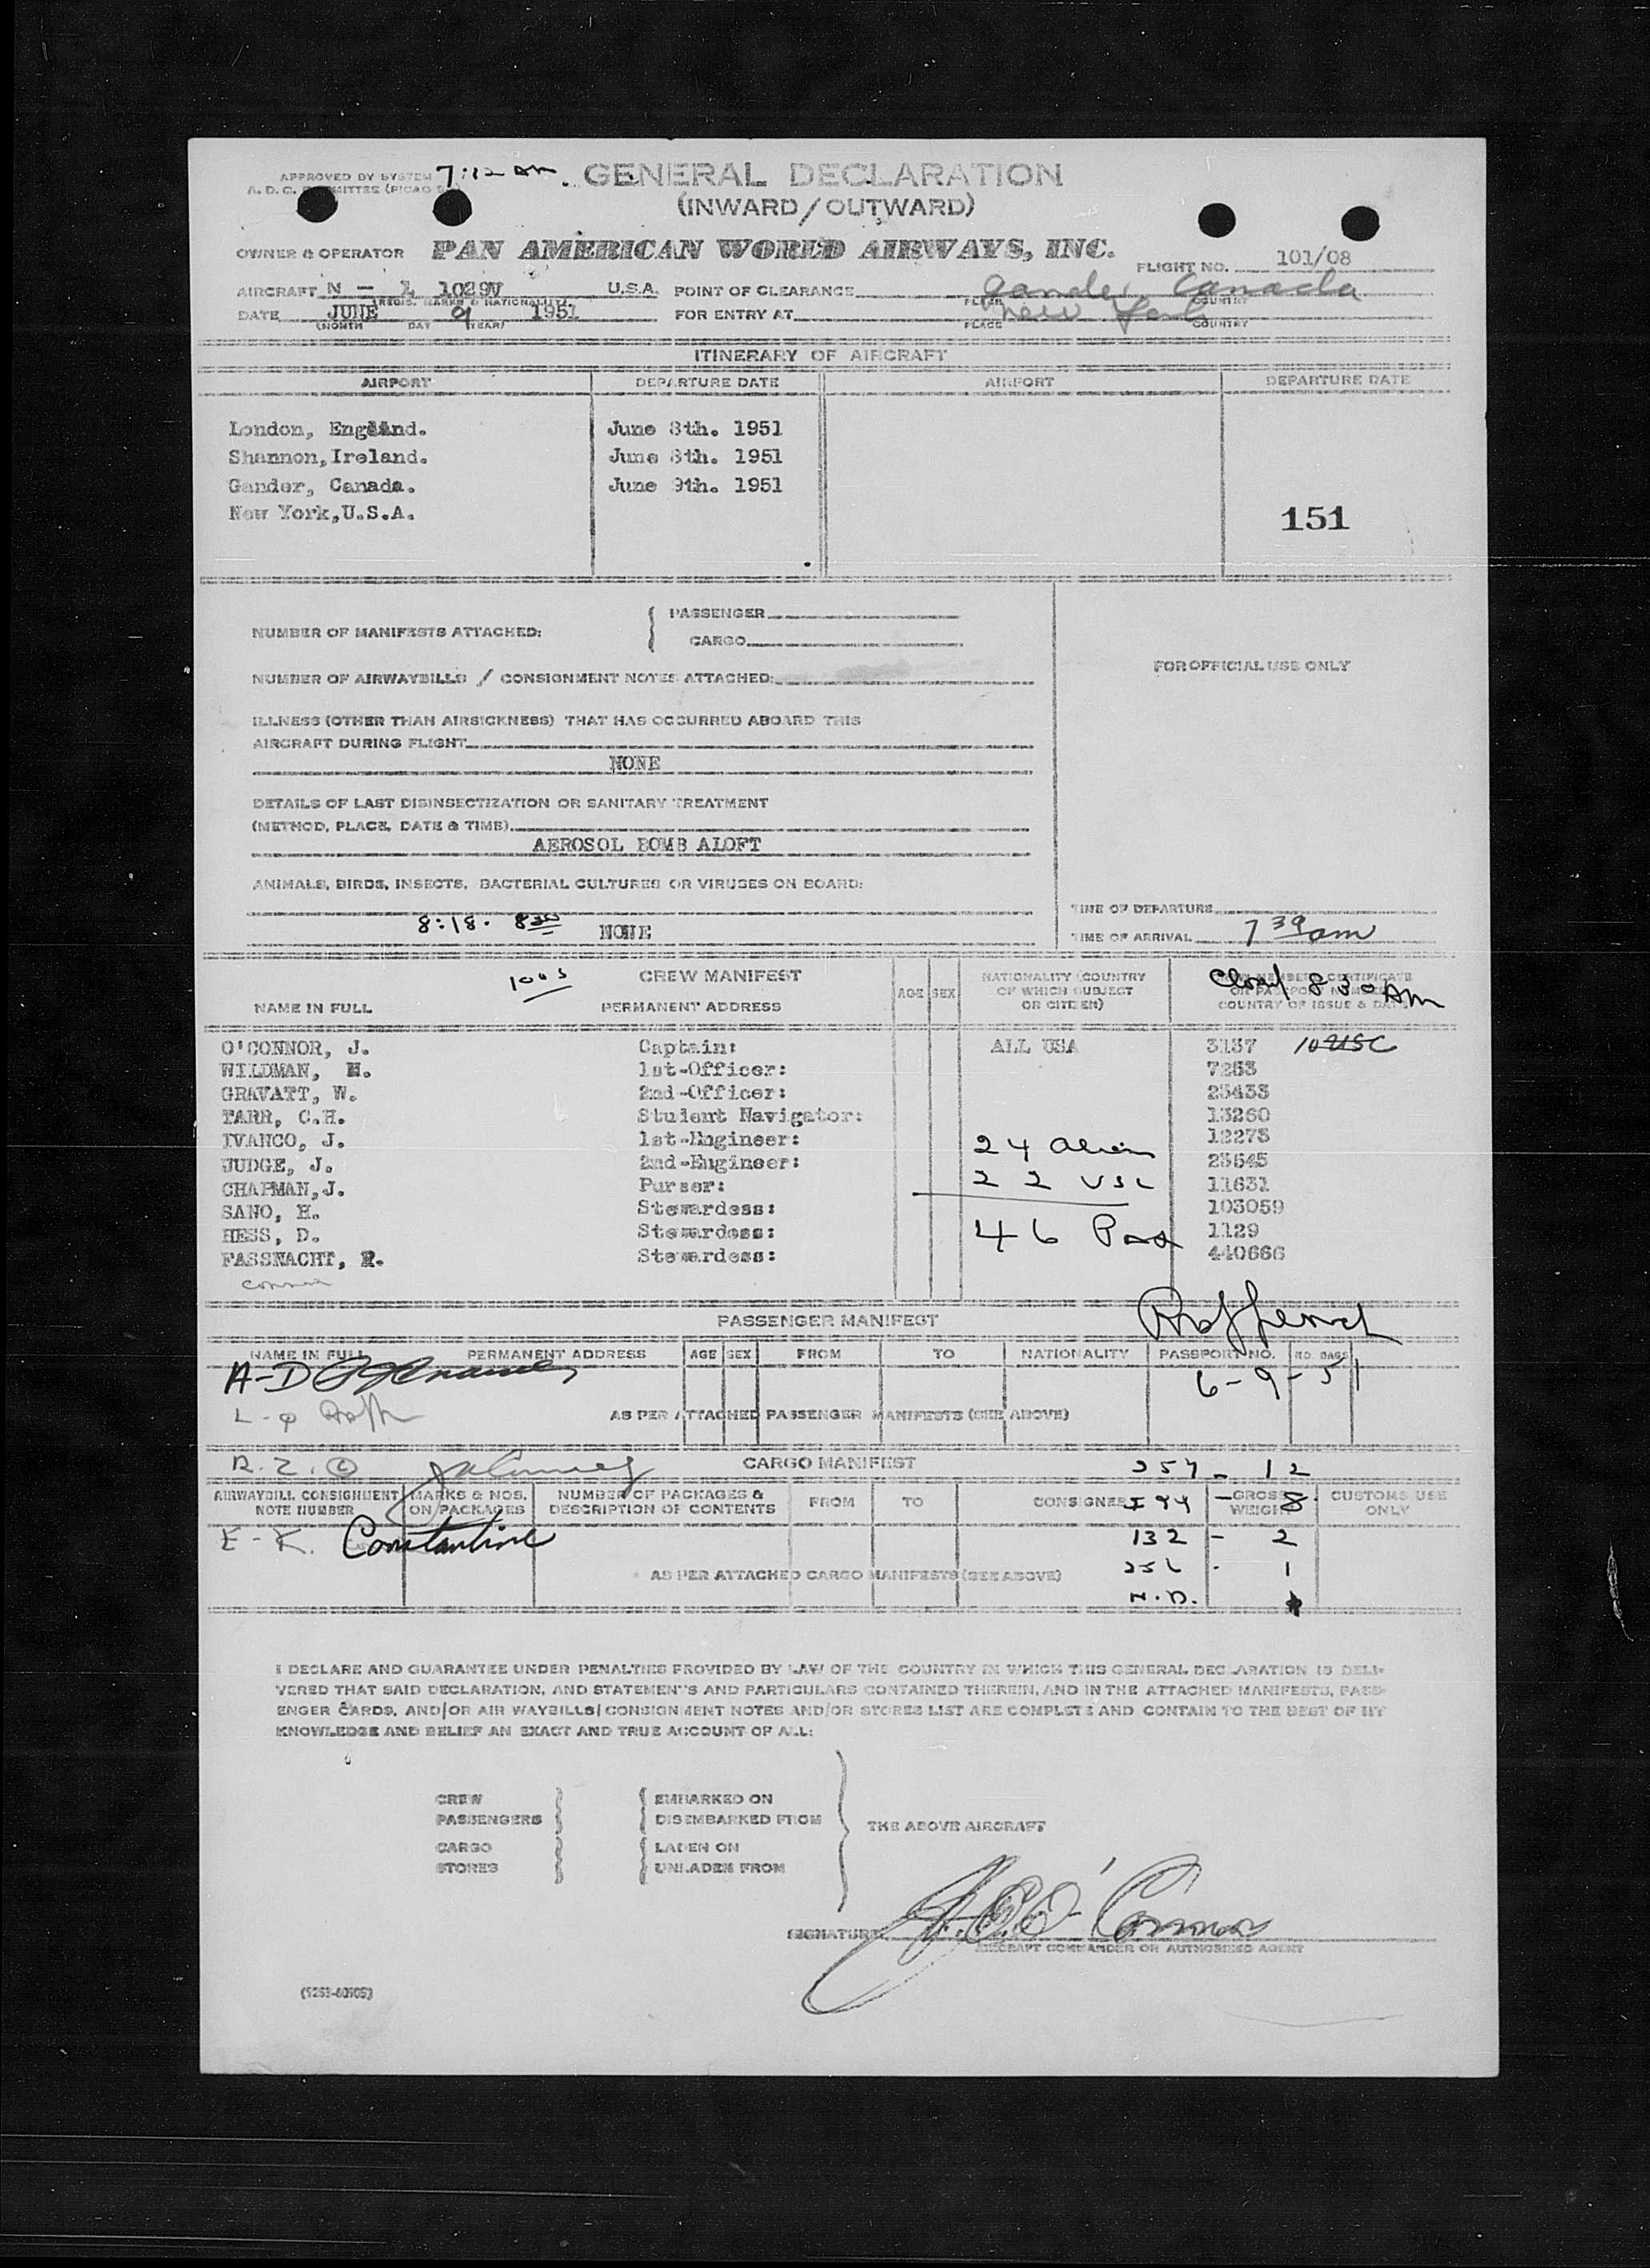 APPROVED BY SYSTEM 7:12 am. GENERAL DECLARATION
A. D. C. COMMITTEE (PICAO
(INWARD/OUTWARD)
OWNER & OPERATOR PAN AMERICAN WORLD AIRWAYS, INC.
FLIGHT NO. 101/08
AIRCRAFT N - 1029V U.S.A. POINT OF CLEARANCE Gander Canada
(REGIS. MARKS & NATIONALITY) PLACE COUNTRY
DATE JUNE 9 1951 FOR ENTRY AT New York
(MONTH DAY YEAR) PLACE COUNTRY
ITINERARY OF AIRCRAFT
AIRPORT DEPARTURE DATE AIRPORT DEPARTURE DATE
London, England. June 8th. 1951
Shannon,Ireland. June 8th. 1951
Gander, Canada. June 9th. 1951
New York,U.S.A.
151
NUMBER OF MANIFESTS ATTACHED: PASSENGER
CARGO
FOR OFFICIAL USE ONLY
NUMBER OF AIRWAYBILLS / CONSIGNMENT NOTES ATTACHED:
ILLNESS (OTHER THAN AIRSICKNESS) THAT HAS OCCURRED ABOARD THIS
AIRCRAFT DURING FLIGHT
NONE
DETAILS OF LAST DISINSECTIZATION OR SANITARY TREATMENT
(METHOD, PLACE, DATE & TIME)
AEROSOL BOMB ALOFT
ANIMALS, BIRDS, INSECTS, BACTERIAL CULTURES OR VIRUSES ON BOARD:
TIME OF DEPARTURE
8:18. 830 NONE
TIME OF ARRIVAL 7 39 am
CREW MANIFEST
NAME IN FULL PERMANENT ADDRESS AGE SEX NATIONALITY (COUNTRY OF WHICH SUBJECT OR CITIZEN) CREW MEMBERS CERTIFICATE OR PASSPORT NUMBER COUNTRY OF ISSUE & DATE
8 30 AM
O'CONNOR, J. Captain: ALL USA 3137 10 USC
WILDMAN, H. 1st-Officer: 7253
GRAVATT, W. 2nd-Officer: 23433
TARR, C.H. Student Navigator: 13260
IVANCO, J. 1st-Engineer: 12273
JUDGE, J. 2nd-Engineer: 24 Alien 23545
CHAPMAN,J. Purser: 22 USC 11631
SANO, H. Stewardess: 103059
HESS, D. Stewardess: 46 Pax 1129
FASSNACHT, R. Stewardess: 440666
PASSENGER MANIFEST
NAME IN FULL PERMANENT ADDRESS AGE SEX FROM TO NATIONALITY PASSPORT NO. NO. BAGS
A-D
6-9-51
AS PER ATTACHED PASSENGER MANIFESTS (SEE ABOVE)
CARGO MANIFEST
257 - 12
AIRWAYBILL CONSIGNMENT NOTE NUMBER MARKS & NOS. ON PACKAGES NUMBER OF PACKAGES & DESCRIPTION OF CONTENTS FROM TO CONSIGNEE GROSS WEIGHT CUSTOMS USE ONLY
I 94 - 8
E-K. Constantine 132 - 2
AS PER ATTACHED CARGO MANIFESTS (SEE ABOVE)
N.D.
I DECLARE AND GUARANTEE UNDER PENALTIES PROVIDED BY LAW OF THE COUNTRY IN WHICH THIS GENERAL DECLARATION IS DELI-
VERED THAT SAID DECLARATION, AND STATEMENTS AND PARTICULARS CONTAINED THEREIN, AND IN THE ATTACHED MANIFESTS, PASS-
ENGER CARDS, AND/OR AIR WAYBILLS/CONSIGNMENT NOTES AND/OR STORES LIST ARE COMPLETE AND CONTAIN TO THE BEST OF MY
KNOWLEDGE AND BELIEF AN EXACT AND TRUE ACCOUNT OF ALL:
CREW EMBARKED ON
PASSENGERS DISEMBARKED FROM
THE ABOVE AIRCRAFT
CARGO LADEN ON
STORES UNLADEN FROM
SIGNATURE J.C.O'Connor
AIRCRAFT COMMANDER OR AUTHORISED AGENT
(5253-60905)